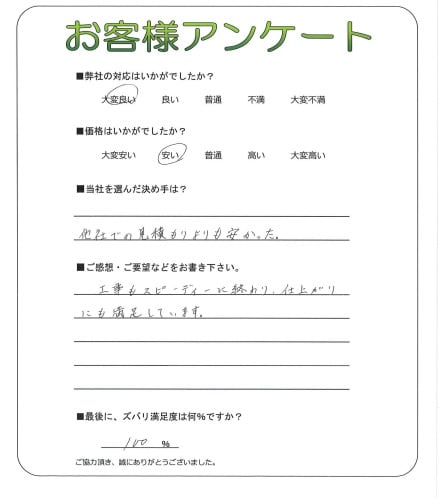 お客様アンケート
■弊社の対応はいかがでしたか？
大変良い 良い 普通 不満 大変不満
■価格はいかがでしたか？
大変安い 安い 普通 高い 大変高い
■当社を選んだ決め手は？
他社での見積もりよりも安かった。
■ご感想・ご要望などをお書き下さい。
工事もスピーディーに終わり、仕上がり
にも満足しています。
■最後に、ズバリ満足度は何％ですか？
100 ％
ご協力頂き、誠にありがとうございました。